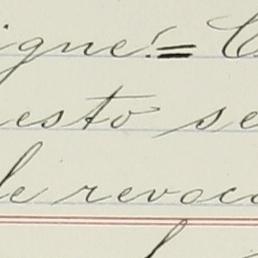 igne!= C
esto se
le revoca